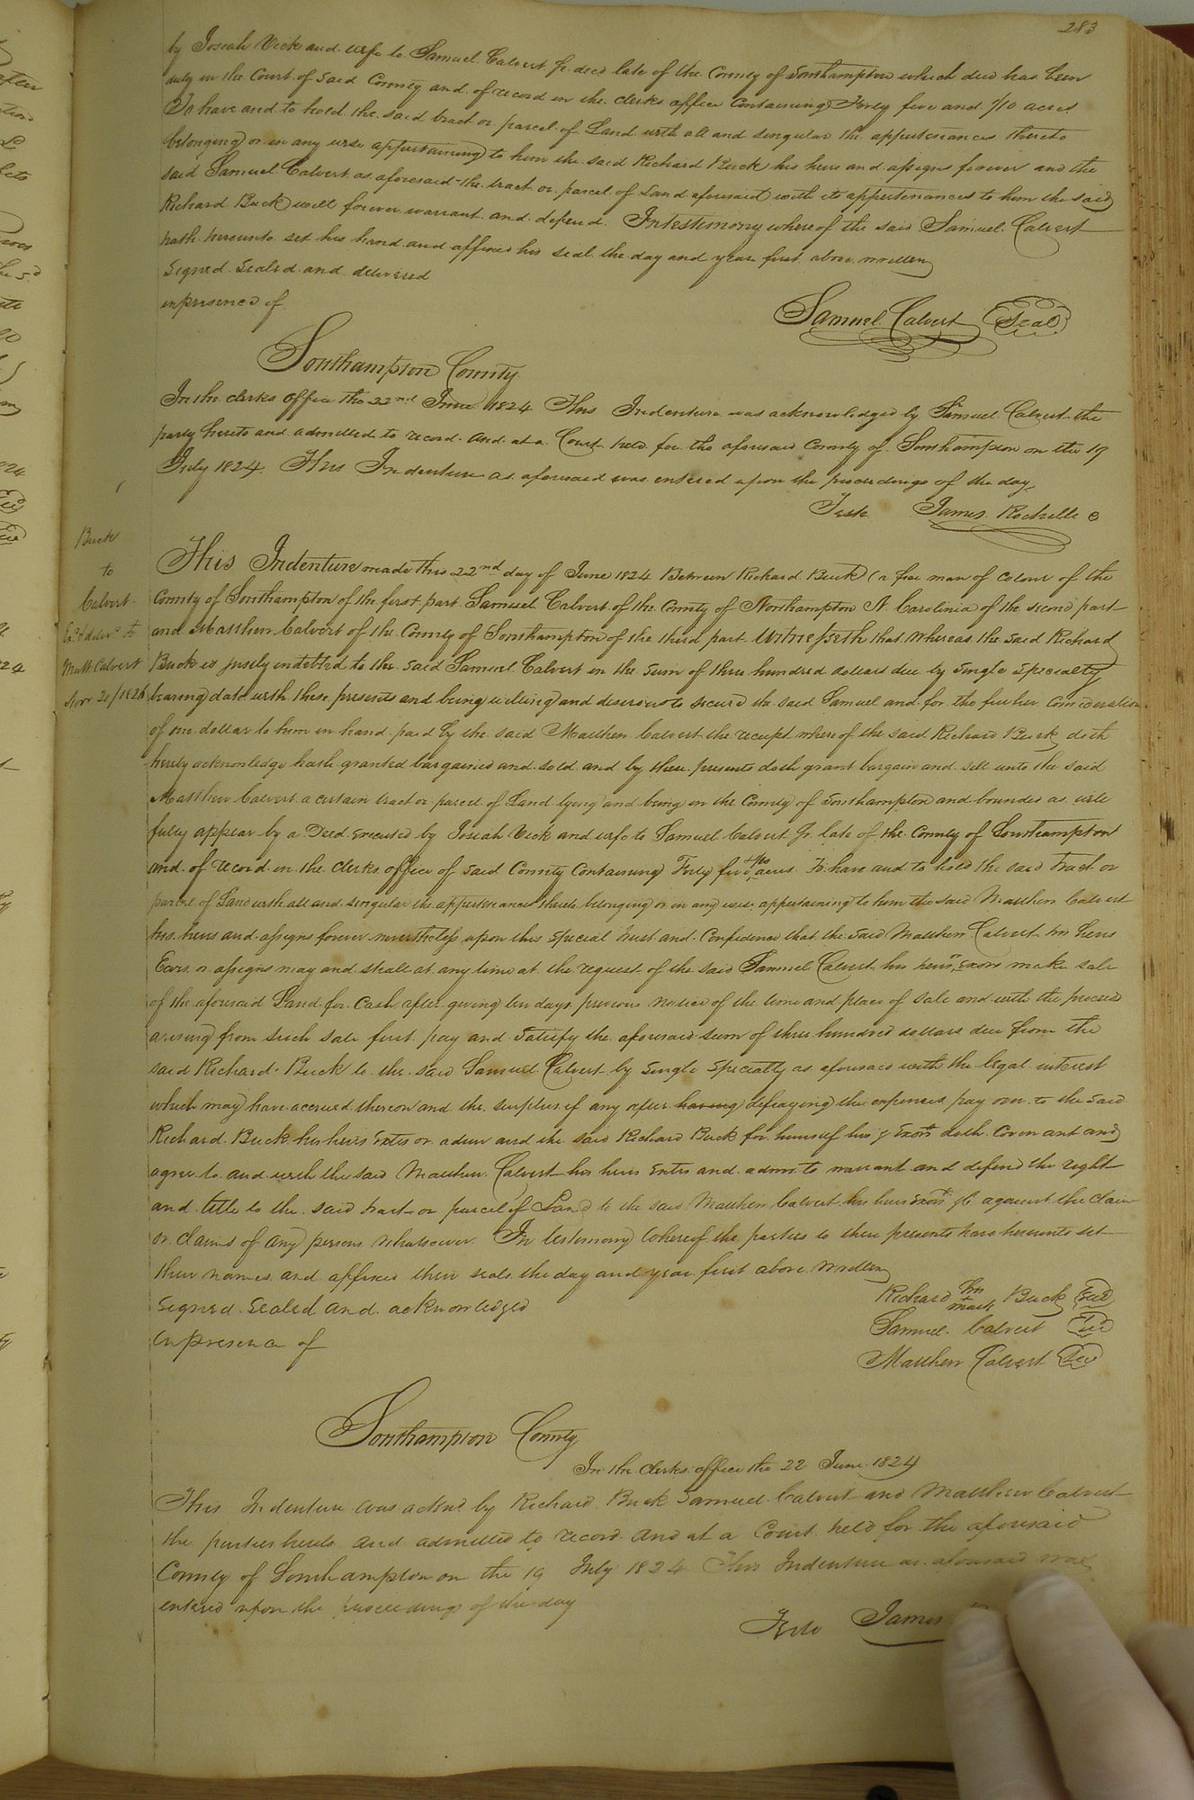 283
by Josiah Vick and wife to Samuel Calvert Jr. decd late of the County of Southampton which deed has been
duly in the Court of said County and of record in the clerks office Containing Forty five and 7/10 acres
To have and to hold the said tract or parcel of Land with all and singular the appurtenances thereto
belonging or in any wise appertaining to him the said Richard Buck his heirs and assigns forever and the
said Samuel Calvert as aforesaid the tract or parcel of Land aforesaid with its appurtenances to him the said
Richard Buck will forever warrant and defend. In testimony whereof the said Samuel Calvert
hath hereunto set his hand and affixed his seal the day and year first above written
Signed Sealed and delivered
in presence of
Samuel Calvert Seal
Southampton County
In the clerks office the 22nd June 1824 This Indenture was acknowledged by Samuel Calvert the
party hereto and admitted to record. And at a Court held for the aforesaid County of Southampton on the 19
July 1824. This Indenture as aforesaid was entered upon the proceedings of the day
Teste James Rochelle C
Buck
to
Calvert
Matt Calvert
Nov 20/1826
This Indenture made this 22nd day of June 1824 Between Richard Buck (a free man of Colour of the
County of Southampton of the first part Samuel Calvert of the County of Northampton N. Carolina of the second part
and Matthew Calvert of the County of Southampton of the third part Witnesseth that whereas the said Richard
Buck is justly indebted to the said Samuel Calvert in the sum of three hundred dollars due by single specialty
bearing date with these presents and being willing and desirous to secure the said Samuel and for the further consideration
of one dollar to him in hand paid by the said Matthew Calvert the receipt whereof the said Richard Buck doth
hereby acknowledge hath granted bargained and sold and by these presents doth grant bargain and sell unto the said
Matthew Calvert a certain tract or parcel of Land lying and being in the County of Southampton and bounded as will
fully appear by a Deed executed by Josiah Vick and wife to Samuel Calvert Jr. late of the County of Southampton
and of record in the Clerks office of said County Containing Forty five 7/10 acres To have and to hold the said tract or
parcel of Land with all and singular the appurtenances thereto belonging or in any wise appertaining to him the said Matthew Calvert
his heirs and assigns forever nevertheless upon this special trust and Confidence that the said Matthew Calvert his heirs
Exors. or assigns may and shall at any time at the request of the said Samuel Calvert his heirs, exors make sale
of the aforesaid Land for Cash after giving ten days previous notice of the time and place of sale and with the proceed
arising from such sale first pay and satisfy the aforesaid sum of three hundred dollars due from the
said Richard Buck to the said Samuel Calvert by single specialty as aforesaid with the legal interest
which may have accrued thereon and the surplus if any after having defraying the expenses pay over to the said
Richard Buck his heirs Extrs or admr and the said Richard Buck for himself his & Exors doth Covenant and
agree to and with the said Matthew Calvert his heirs Extrs and admrs to warrant and defend the right
and title to the said tract or parcel of Land to the said Matthew Calvert his heirs Exors &c against the claim
or claims of any persons whatsoever. In testimony Whereof the parties to these presents have hereunto set
their names and affixed their seals the day and year first above written
Signed Sealed and acknowledged
in presence of
Richard his mark Buck Seal
Samuel Calvert Seal
Matthew Calvert Seal
Southampton County
In the clerks office the 22 June 1824
This Indenture was acknd by Richard Buck Samuel Calvert and Matthew Calvert
the parties hereto and admitted to record And at a Court held for the aforesaid
County of Southampton on the 19 July 1824 This Indenture as aforesaid was
entered upon the proceedings of the day
Teste James